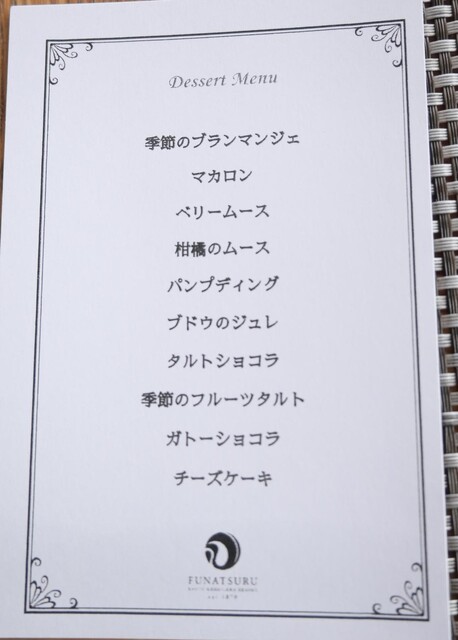 Dessert Menu
季節のブランマンジェ
マカロン
ベリームース
柑橘のムース
パンプディング
ブドウのジュレ
タルトショコラ
季節のフルーツタルト
ガトーショコラ
チーズケーキ
FUNATSURU